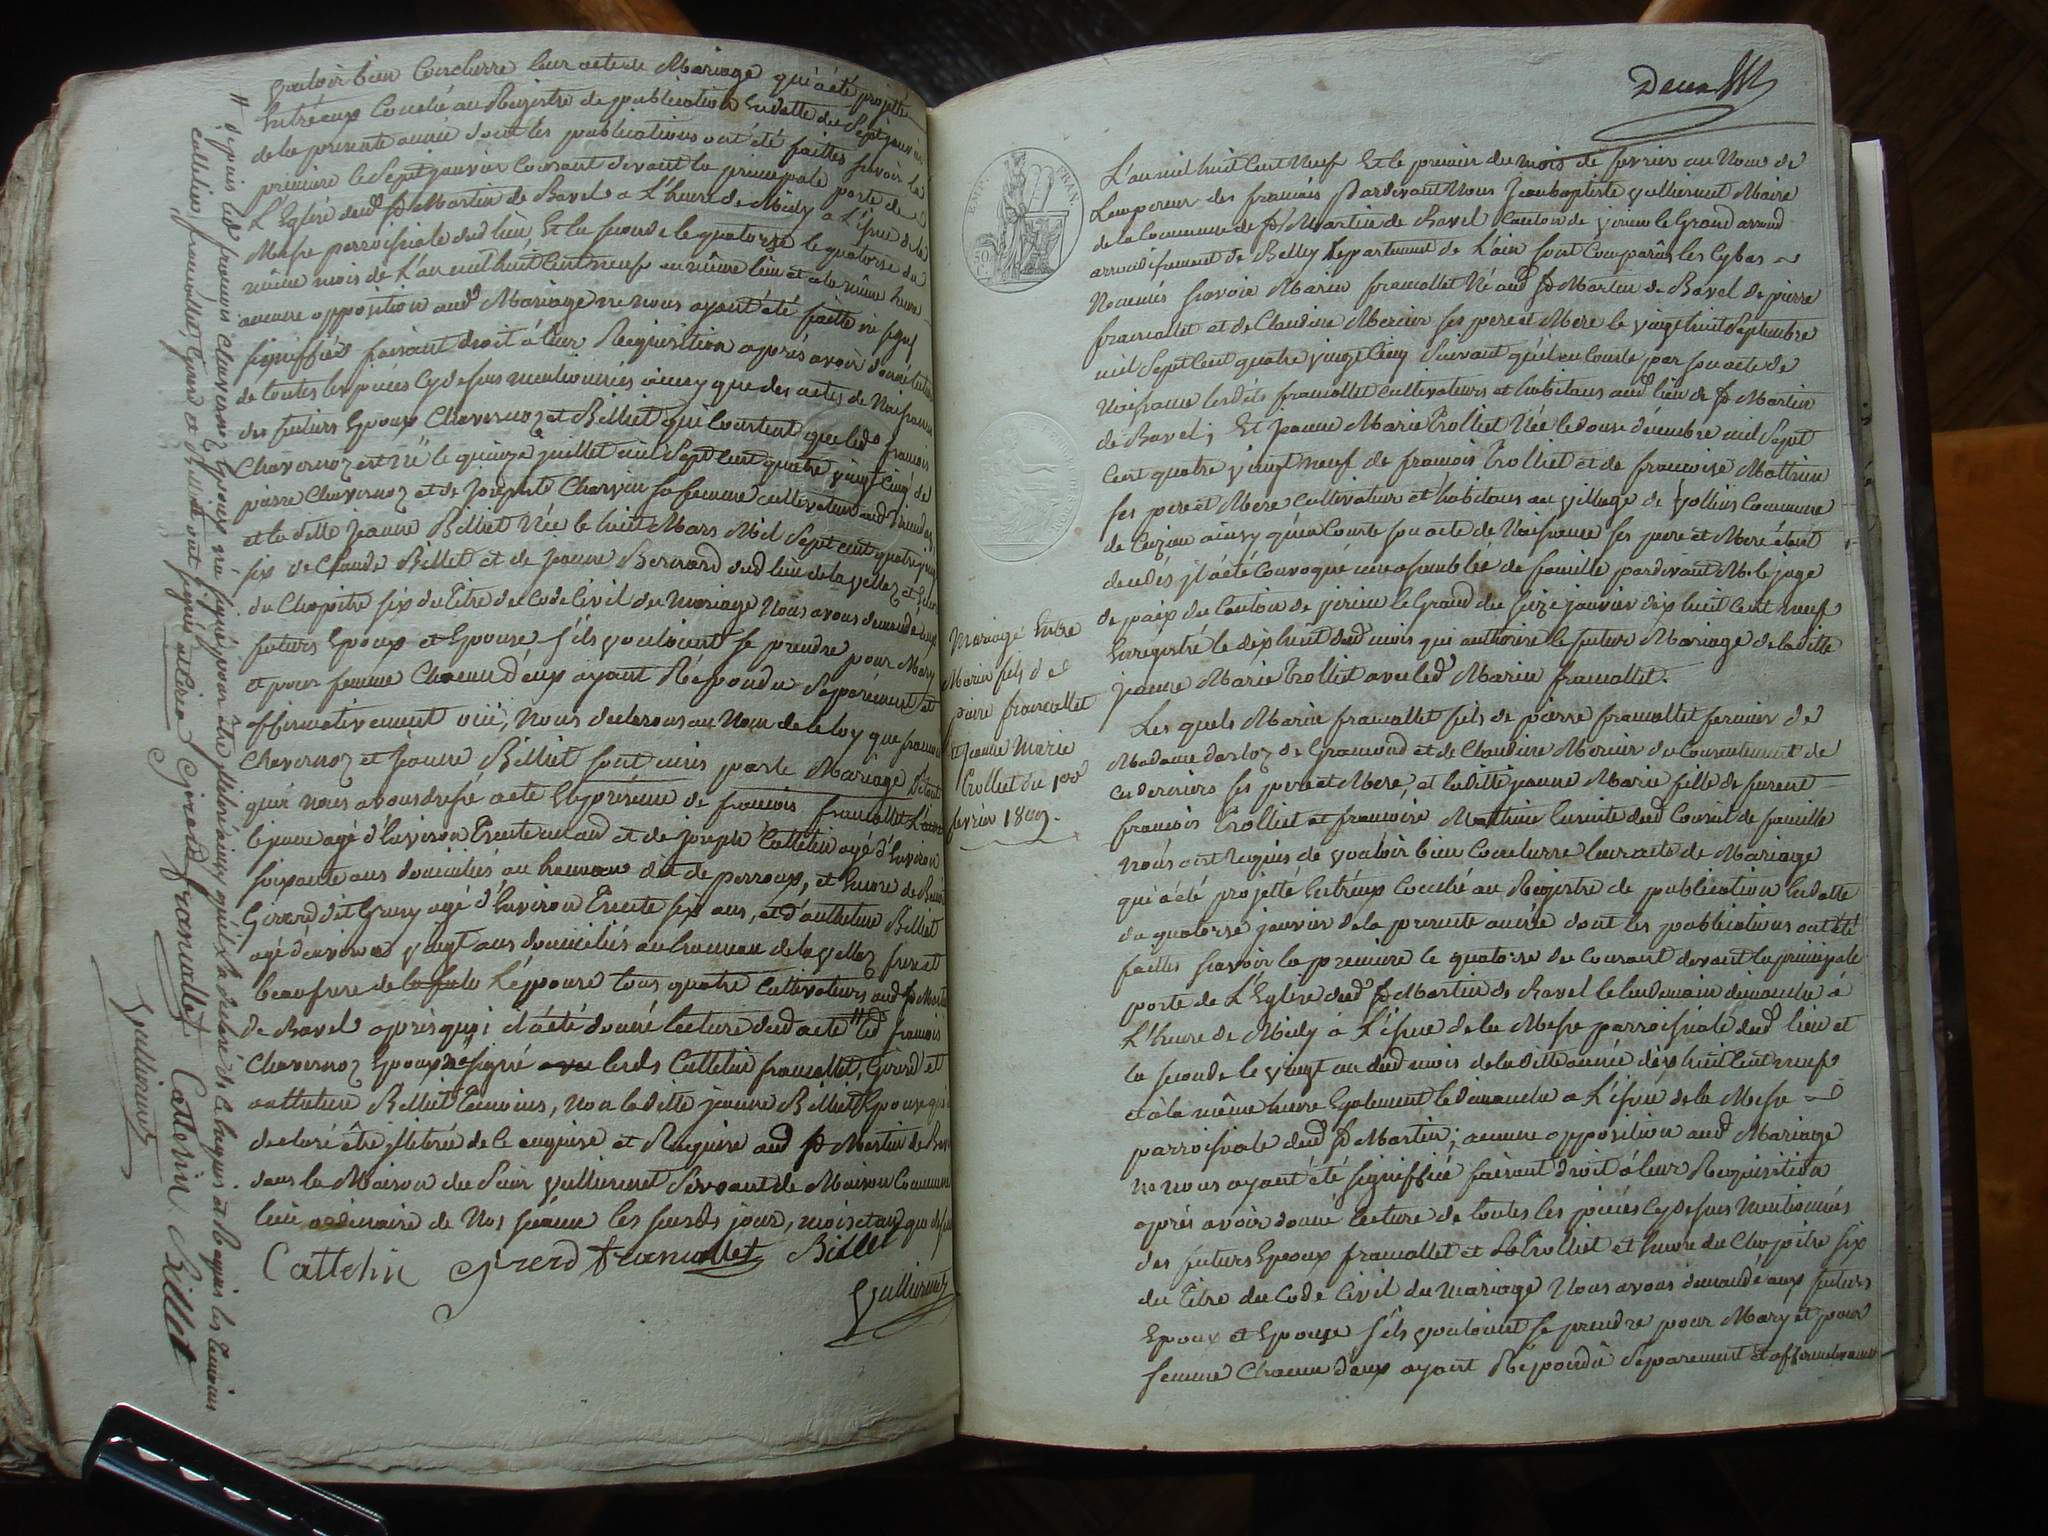 vouloir bien Conclurre leur acte de Mariage qui a été projetté
Entr'eux Couché au Registre de publication En datte du Sept janvier
de la presente année dont les publications ont été faittes Savoir la
premiere le Sept janvier Courant devant la principale porte de
L'Eglise dud St Martin de Bavel a L'heure de Midy a L'issue de la
Messe parroissiale dud lieu, Et la seconde le quatorze le quatorse du
même mois de L'an mil huit Cent neuf au même lieu et a la même heure
aucune opposition aud Mariage ne nous ayant été faitte ni
signiffiée faisant droit à leur Requisition aprés avoir donné lecture
de toutes les piéces Cydessus mentionnées ainsy que des actes de Naissance
des futurs Epoux Chavernoz et Billiet qui Constent que led francois
Chavernoz est Né le quinze juillet mil Sept Cent quatre vingt Cinq de
pierre Chavernoz et de Josephte Charvin sa femme cultivateurs aud
et la ditte Jeanne Billiet Née le huit Mars Mil Sept cent quatre vingt
six de Claude Billet et de Jeanne Bernard dud lieu de la vellaz et
du Chapitre six du Titre du Code Civil du Mariage Nous avons demandé aux
futurs Epoux et Epouse s'ils vouloient se prendre pour Mary
et pour femme Chacun d'eux ayant Répondu Séparément et
affirmativement oui, Nous declarons au Nom de la loy que francois
Chavernoz et Jeanne Billiet sont unis par le Mariage
quoi nous avons dressé acte En présence de francois francallet
le jeune agé d'Environ Trente un ans et de joseph Cattelin agé d'Environ
soixante ans domiciliés au hameau dit de perroux, et Encore de
Girerd dit Grusy agé d'Environ Trente six ans, et d'anthelme Billiet
agé d'environ vingt ans domiciliés au hameau de la vellaz frere et
beaufrere de L'épouse tous quatre Cultivateurs aud St Martin
de Bavel aprés quoi il a été donné lecture dud acte // led francois
Chavernoz Epoux signé lesds Cattelin francallet, Girerd et
anthelme Billiet Temoins, non la ditte jeanne Billiet Epouse qui a
declaré être illitérée de le enquise et Requise aud St Martin de Bavel
dans la Maison du Sieur Vullierme Servant de Maison Commune
lieu ordinaire de Nos séances les susds jour, mois et an que dessus
Cattelin Girerd francallet Billet
Vullierme
// depuis led francois Chavernoz Epoux n'a signé pour être illitéré ainsy qu'il l'a declaré de le enquis et Requis les Temoins
Cattelin, francallet, Girerd et Billiet ont signé
Girerd francallet Cattelin Billet
Vullierme
Deux
EMP. FRAN.
50
Mariage Entre
Marin fils de
pierre francallet
et Jeanne Marie
Trolliet du 1er
fevrier 1809.
L'an mil huit Cent Neuf Et le premier du mois de fevrier au Nom de
L'empereur des francais Pardevant Nous Jeanbaptiste Vullierme Maire
de la Commune de St Martin de Bavel Canton de virieu le Grand arrond
arrondissement de Belley Departement de L'ain sont Comparûs les Cy bas
Nommés Savoir Marin francallet Né aud St Martin de Bavel de pierre
francallet et de Claudine Mercier ses pere et Mere le vingt huit Septembre
mil Sept Cent quatre vingt Cinq Suivant qu'il en Conste par son acte de
Naissance lesdits francallet cultivateurs et habitans aud lieu de St Martin
de Bavel; Et Jeanne Marie Trolliet Née le douse décembre mil Sept
Cent quatre vingt neuf de francois Trolliet et de francoise Mathieu
ses pere et Mere Cultivateurs et habitans au village de Vollien Commune
de Ceizieu ainsy qu'en Conste son acte de Naissance ses pere et Mere étant
decedés il a été Convoqué une assemblée de famille pardevant Mr le juge
de paix du Canton de virieu le Grand du seize janvier dix huit Cent neuf
Enregistré le dix huit dud mois qui authorise le futur Mariage de la ditte
Jeanne Marie Trolliet avec led Marin francallet.
Les quels Marin francallet fils de pierre francallet fermier de
Madame Darloz de Gramond et de Claudine Mercier du Consentement de
ces derniers ses pere et Mere; et la ditte jeanne Marie fille de furent
francois Trolliet et francoise Mathieu Ensuite dud Conseil de famille
Nous ont Requis de vouloir bien Conclurre leur acte de Mariage
qui a été projetté Entr'eux Couché au Registre de publication En datte
du quatorse janvier de la presente année dont les publications ont été
faittes Savoir la premiere le quatorse du Courant devant la principale
porte de L'Eglise dud St Martin de Bavel le lendemain dimanche à
L'heure de Midy à L'issue de la Messe parroissiale dud lieu et
la seconde le vingt un dud mois de la ditte année dix huit Cent neuf
et à la même heure Egalement le dimanche a L'issue de la Messe
parroissiale dud St Martin; aucune opposition aud Mariage
ne nous ayant été signiffiée faisant droit à leur Requisition
aprés avoir donné lecture de toutes les piéces Cydessus Mentionnées
des futurs Epoux francallet et Trolliet et Encore du Chapitre six
du Titre du Code Civil du Mariage Nous avons demandé aux futurs
Epoux et Epouse s'ils vouloient se prendre pour Mary et pour
femme Chacun deux ayant Répondu Séparement et affirmativement